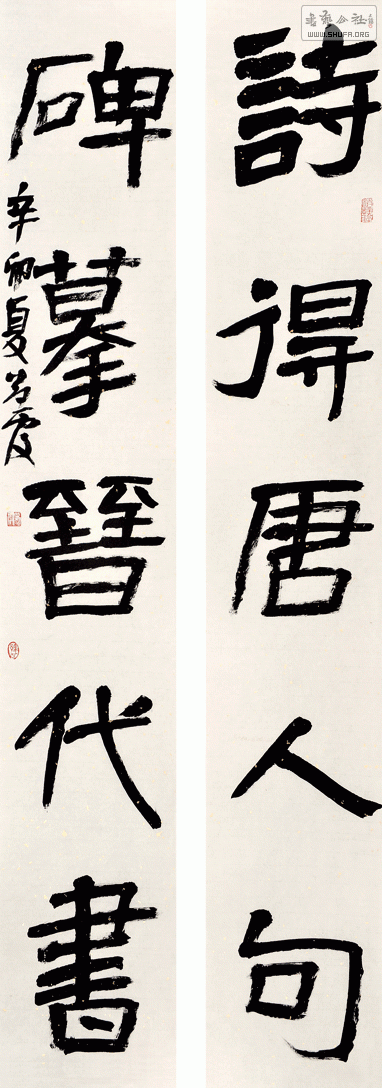 詩得唐人句
碑摹晉代書
辛卯夏
书法公社
WWW.SHUFA.ORG